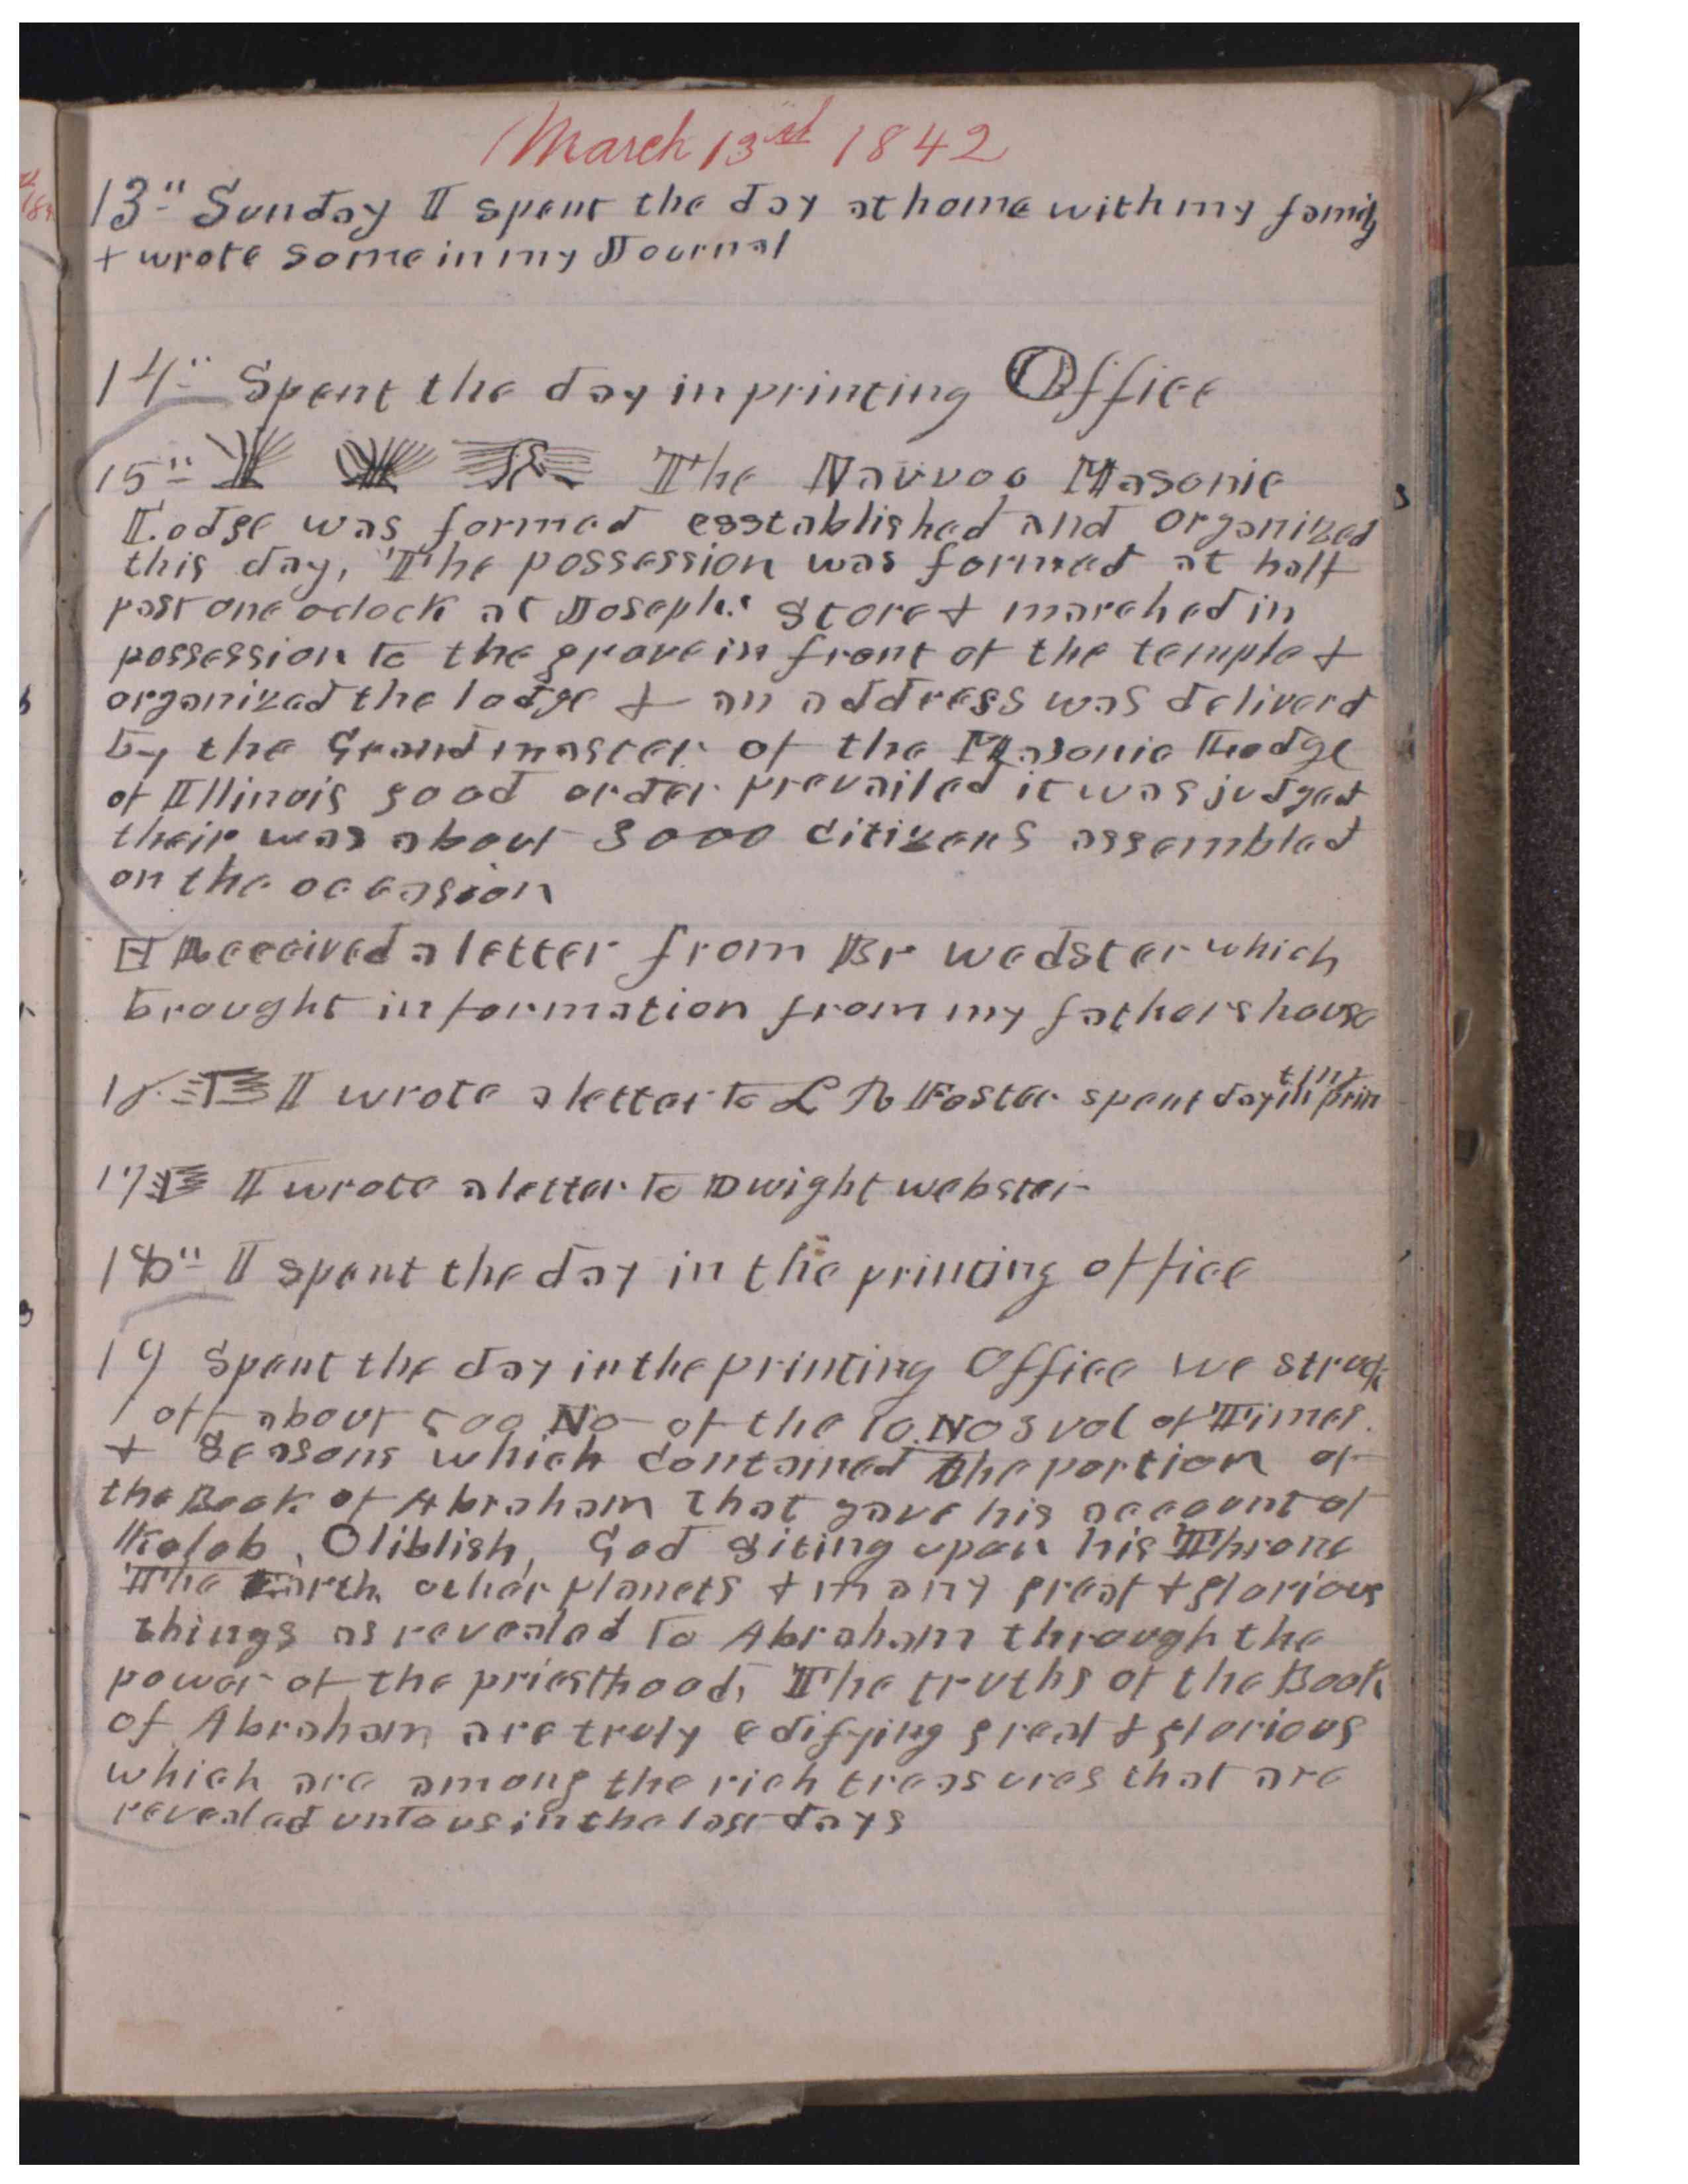 March 13rd 1842
13" Sunday I spent the day at home with my family
+ wrote some in my Journal
14" Spent the day in printing Office
15" The Nauvoo Masonic
Lodge was formed esstablished and organized
this day, The possession was formed at half
past one oclock at Josephs Store + marched in
possession to the grove in front of the temple +
organized the lodge + an address was deliverd
by the Grand master of the Masonic Lodge
of Illinois good order prevailed it was judged
their was about 3000 citizens assembled
on the occasion
Received a letter from Br Wedster which
brought information from my fathers house
I wrote a letter to L R Foster spent day in prin
17 I wrote a letter to Dwight webster
18" I spent the day in the printing office
19 Spent the day in the printing Office we struck
off about 500 No of the 10. No 3 vol of Times
+ Seasons which contained the portion of
the Book of Abraham that gave his account of
Kolob, Oliblish, God siting upon his Throne
The Earth other planets + many great + glorious
things as revealed to Abraham through the
power of the priesthood, The truths of the Book
of Abraham are truly edifying great + glorious
which are among the rich treasures that are
revealed unto us in the last days